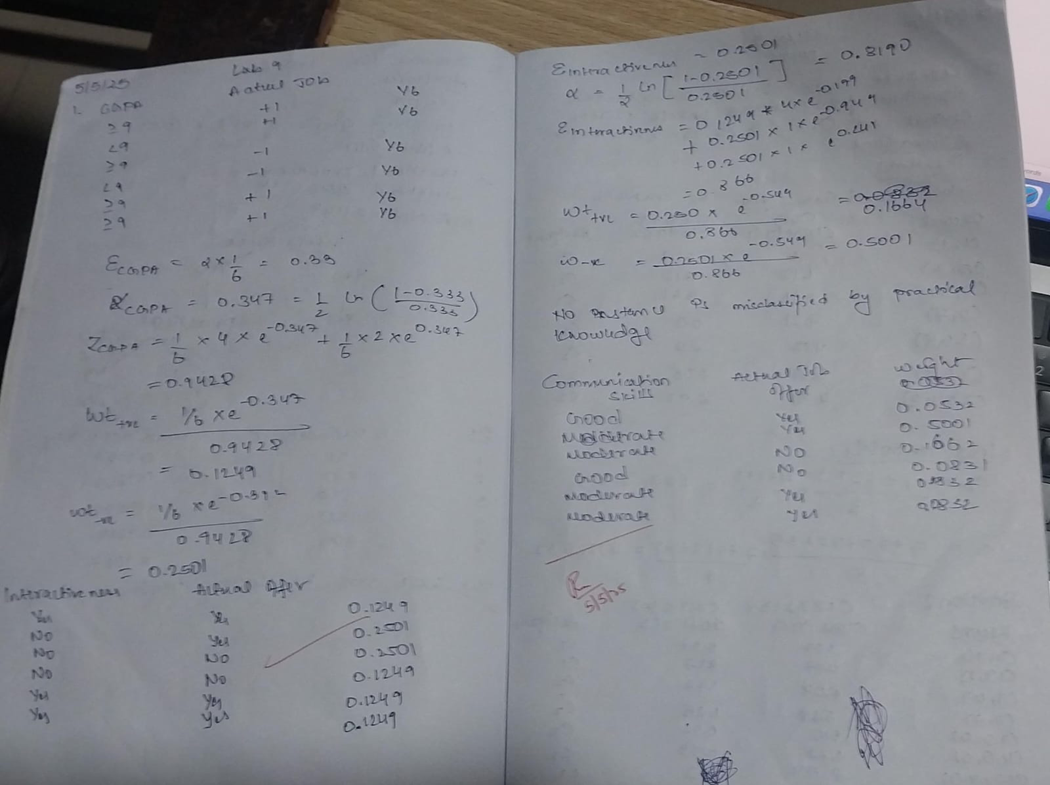 5/5/25
Lab 9
1. CGPA Actual Job
≥9 +1 1/6
<9 +1 1/6
≥9 -1 1/6
<9 -1 1/6
≥9 +1 1/6
≥9 +1 1/6
ε_CGPA = 2 × 1/6 = 0.33
α_CGPA = 0.347 = 1/2 ln (1-0.333/0.333)
Z_CGPA = 1/6 × 4 × e^-0.347 + 1/6 × 2 × e^0.347
= 0.9428
wt = 1/6 × e^-0.347 / 0.9428
= 0.1249
wt = 1/6 × e / 0.9428
= 0.2501
Interactiveness Actual offer
Yes Yes 0.1249
No Yes 0.2501
No No 0.2501
No No 0.1249
Yes Yes 0.1249
Yes Yes 0.1249
E interactiveness = 0.2501
α = 1/2 ln [1-0.2501/0.2501] = 0.8190
E Interactivnes = 0.1249 * 4 × e
+ 0.2501 × 1 × e
+ 0.2501 × 1 ×
= 0.866
wt = 0.250 × e^-0.549 / 0.866 = 0.1664
= 0.2501 × e^-0.549 / 0.866 = 0.5001
No instance is misclassified by practical
knowledge
Communication Skill Actual Job offer Weight
Good Yes 0.0532
Moderate Yes 0.5001
Moderate No 0.1662
Good No 0.0831
Moderate Yes 0832
Moderate Yes 0832
5/5/25